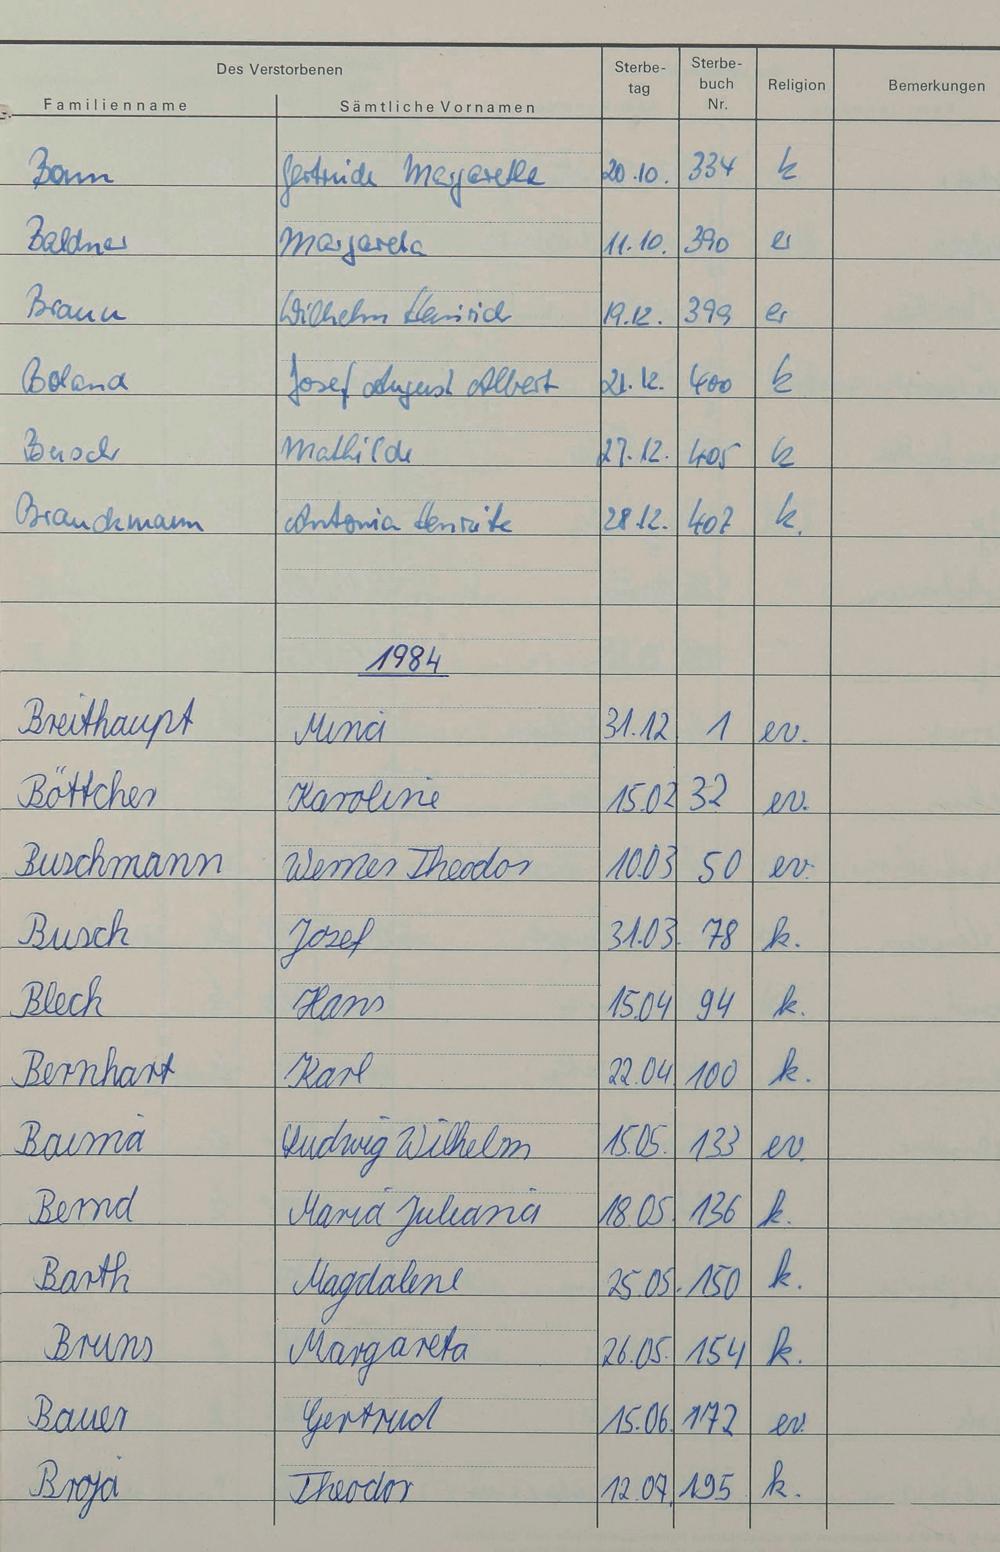 Des Verstorbenen
Familienname Sämtliche Vornamen Sterbe-tag Sterbe-buch Nr. Religion Bemerkungen
Bonn Gertrude Margaretha 20.10. 334 k
Baldner Margareta 11.10. 390 ev
Braun Wilhelm Heinrich 19.12. 399 ev
Boland Josef August Albert 21.12. 400 k
Busch Mathilde 27.12. 405 k
Brauckmann Antonia 28.12. 407 k.
1984
Breithaupt Mina 31.12 1 ev.
Böttcher Karoline 15.02 32 ev.
Buschmann Werner Theodor 10.03 50 ev.
Busch Josef 31.03. 78 k.
Blech Hans 15.04 94 k.
Bernhart Karl 22.04. 100 k.
Ludwig Wilhelm 15.05. 133 ev.
Bernd Maria Juliana 18.05. 136 k.
Barth Magdalene 25.05. 150 k.
Bruns Margareta 26.05. 154 k.
Bauer Gertrud 15.06. 172 ev.
Broja Theodor 12.07. 195 k.